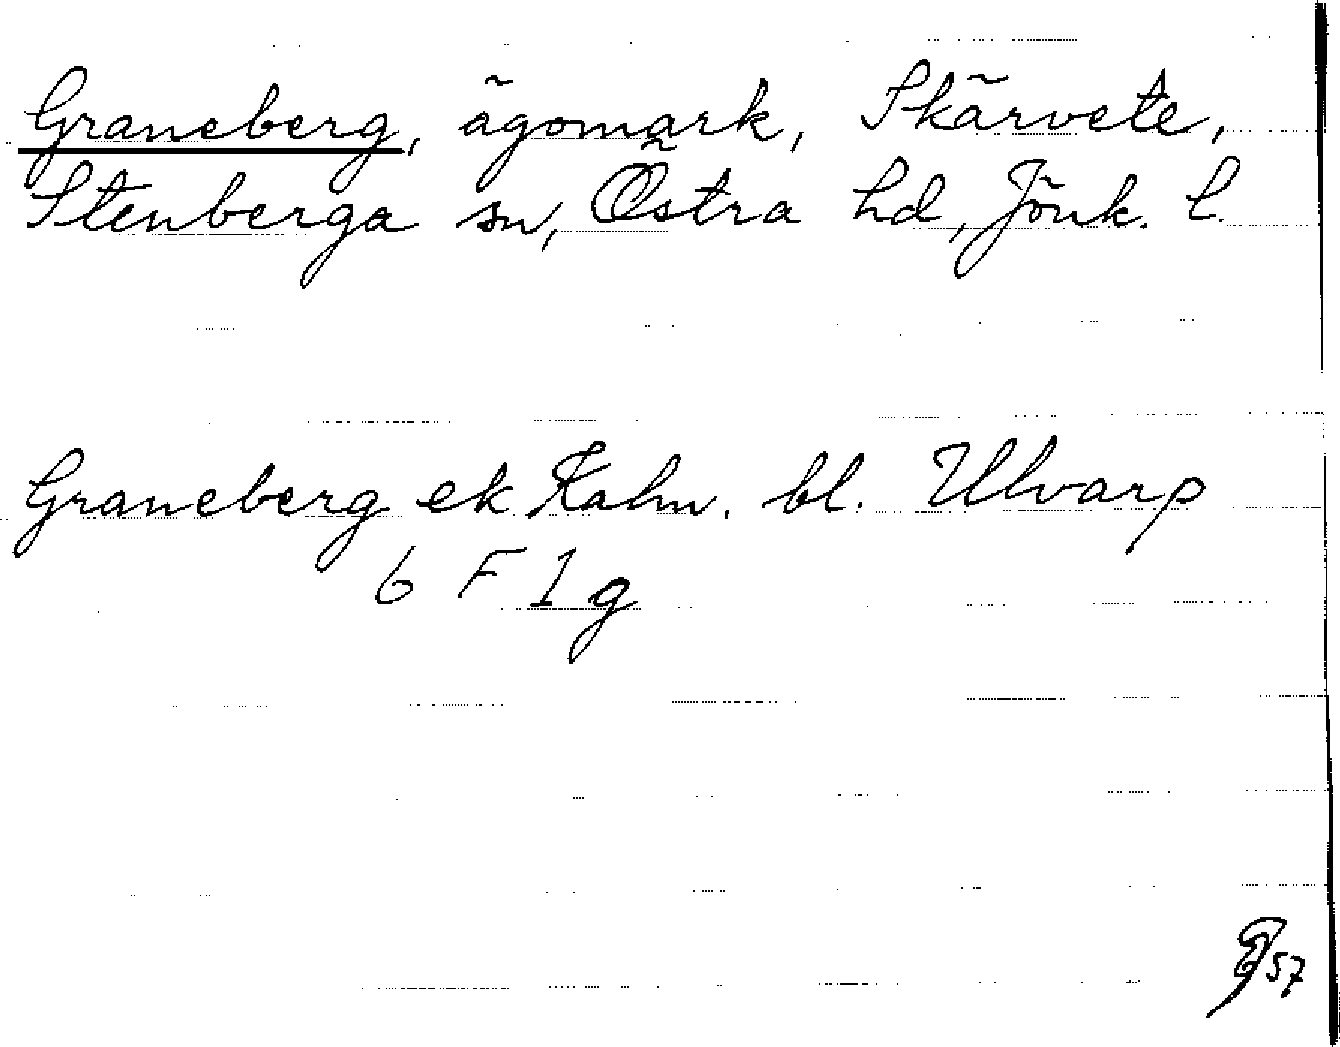 Graneberg, ägomark, Skärvete,
Stenberga sn, Östra hd, Jönk. l.
Graneberg ek Kalm. bl. Ulvarp
6 F 1 g
57